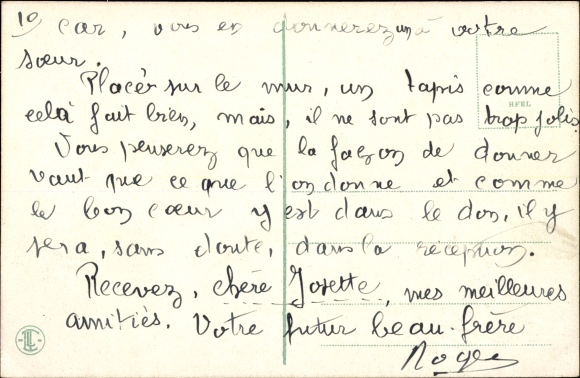 10 car, vous en donnerez un à votre
sœur.
Placés sur le mur, un tapis comme
celà fait bien, mais, il ne sont pas trop jolis
HFEL
Vous penserez que la façon de donner
vaut que ce que l'on donne et comme
le bon cœur y est dans le don, il y
sera, sans doute, dans la réception.
Recevez, chère Josette, mes meilleures
amitiés. Votre futur beau-frère
Roger